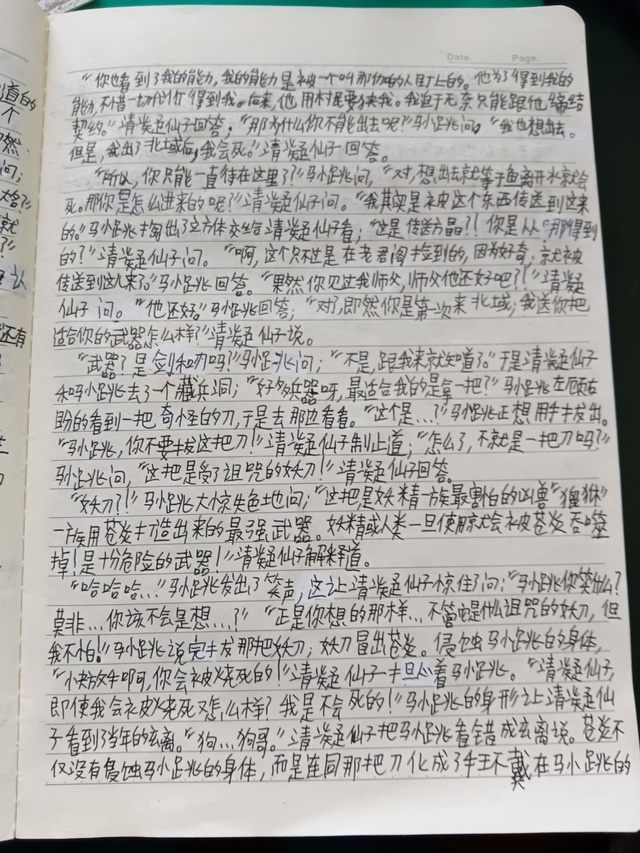 Date.   Page.
“你也看到了我的能力，我的能力是被一个叫那伽的人盯上的。他为了得到我的
能力，不惜一切代价得到我。后来，他用村民要挟我。我迫于无奈只能跟他缔结
契约。”清凝仙子回答；“那为什么你不能出去呢？”马小跳问。“我也想出去。
但是，我出了北域后，我会死。”清凝仙子回答。
“所以，你只能一直待在这里了？”马小跳问，“对，想出去就等于鱼离开水就会
死。那你是怎么进来的呢？”清凝仙子问。“我其实是被这个东西传送到过来
的。”马小跳掏出了立方体交给清凝仙子看；“这是传送方晶？！你是从那得到
的？”清凝仙子问。“啊，这个只不过是在老君阁捡到的，因为好奇，就被
传送到这儿来了。”马小跳回答。“果然你见过我师父，师父他还好吧？！”清凝
仙子问。“他还好。”马小跳回答；“对了，即然你是第一次来北域；我送你把
适合你的武器怎么样？”清凝仙子说。
“武器？是剑和刀吗？”马小跳问；“不是，跟我来就知道了。”于是清凝仙子
和马小跳去了一个藏兵洞；“好多兵器呀，最适合我的是拿一把？”马小跳左顾右
盼的看到一把奇怪白的刀，于是去那边看看。“这个是…？”马小跳正想用手拔出。
“马小跳，你不要拔这把刀！”清凝仙子制止道；“怎么了，不就是一把刀吗？”
马小跳问，“这把是受了诅咒的妖刀！”清凝仙子回答。
“妖刀？！”马小跳大惊失色地问；“这把是妖精一族最害怕的凶兽“猩猴”
一族用苍炎打造出来的最强武器。妖精或人类一旦使用就会被苍炎吞噬
掉！是十份危险的武器！”清凝仙子解释道。
“哈哈哈…”马小跳发出了笑声，这让清凝仙子惊住了问；“马小跳你笑什么？
莫非…你该不会是想…？”“正是你想的那样…不管它是什么诅咒的妖刀，但
我不怕！”马小跳说完拔那把妖刀；妖刀冒出苍炎。侵蚀马小跳的身体，
“小跳放手啊，你会被火烧死的！”清凝仙子担心着马小跳。“清凝仙子，
即使我会被火烧死又怎么样？我是不会死的！”马小跳的身形之上清凝仙
子看到了当年的玄离。“狗…狗哥。”清凝仙子把马小跳看错成玄离说。苍炎不
仅没有侵蚀马小跳的身体，而是连同那把刀化成了手环戴在马小跳的